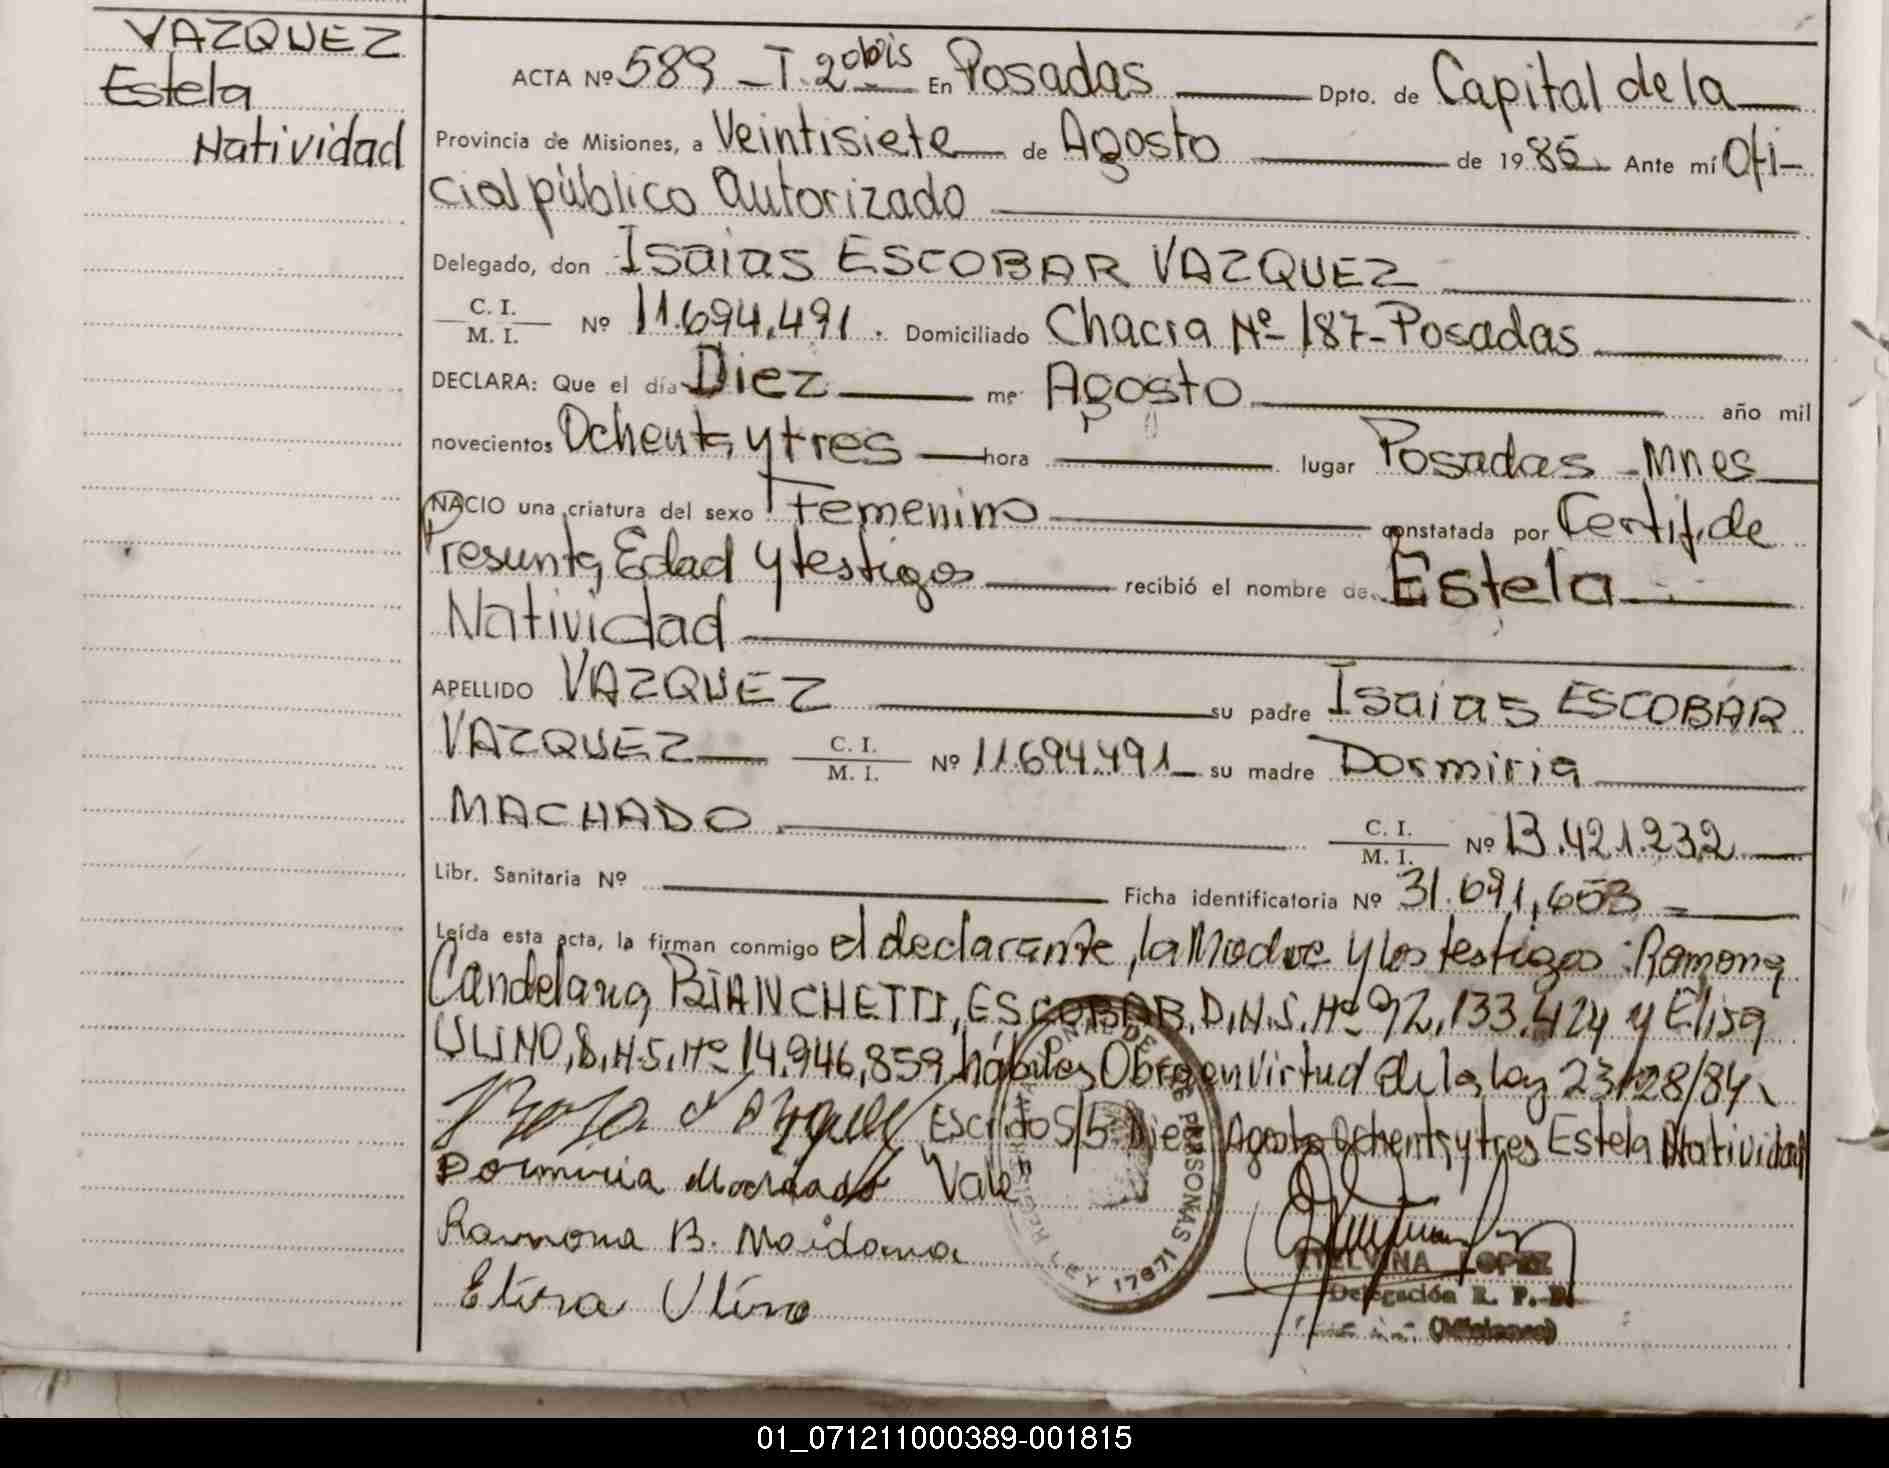 VAZQUEZ
Estela
Natividad
ACTA Nº 589 - T. 2º bis En Posadas Dpto. de Capital de la
Provincia de Misiones, a Veintisiete de Agosto de 1985. Ante mí Ofi-
cial público Autorizado
Delegado, don Isaias ESCOBAR VAZQUEZ
C. I.
M. I. Nº 11.694.491. Domiciliado Chacra Nº 187-Posadas
DECLARA: Que el día Diez mes Agosto año mil
novecientos Ochenta y tres hora lugar Posadas - Mnes
NACIO una criatura del sexo Femenino constatada por Certif. de
Presunta Edad y testigos recibió el nombre de Estela
Natividad
APELLIDO VAZQUEZ su padre Isaias ESCOBAR
VAZQUEZ C. I. M. I. Nº 11.694.491 su madre Dormiria
MACHADO C. I. M. I. Nº 13.421.232
Libr. Sanitaria Nº Ficha identificatoria Nº 31.691.603
Leída esta acta, la firman conmigo el declarante, la Madre y los testigos: Ramona
Candelaria BIANCHETTI, ESCOBAR, D.N.I. Nº 92.133.424 y Elisa
ULINO, D.N.I. Nº 14.946.859 hábiles Obra en Virtud de la ley 23128/84
Escrito S/5 Diez Agosto Ochenta y tres Estela Natividad
Dormiria Machado Vale
Ramona B. Maidana
Elisa Ulino
DE LAS PERSONAS LEY 17671
ETELVINA LOPEZ
Delegación R. P. P.
(Misiones)
01_071211000389-001815